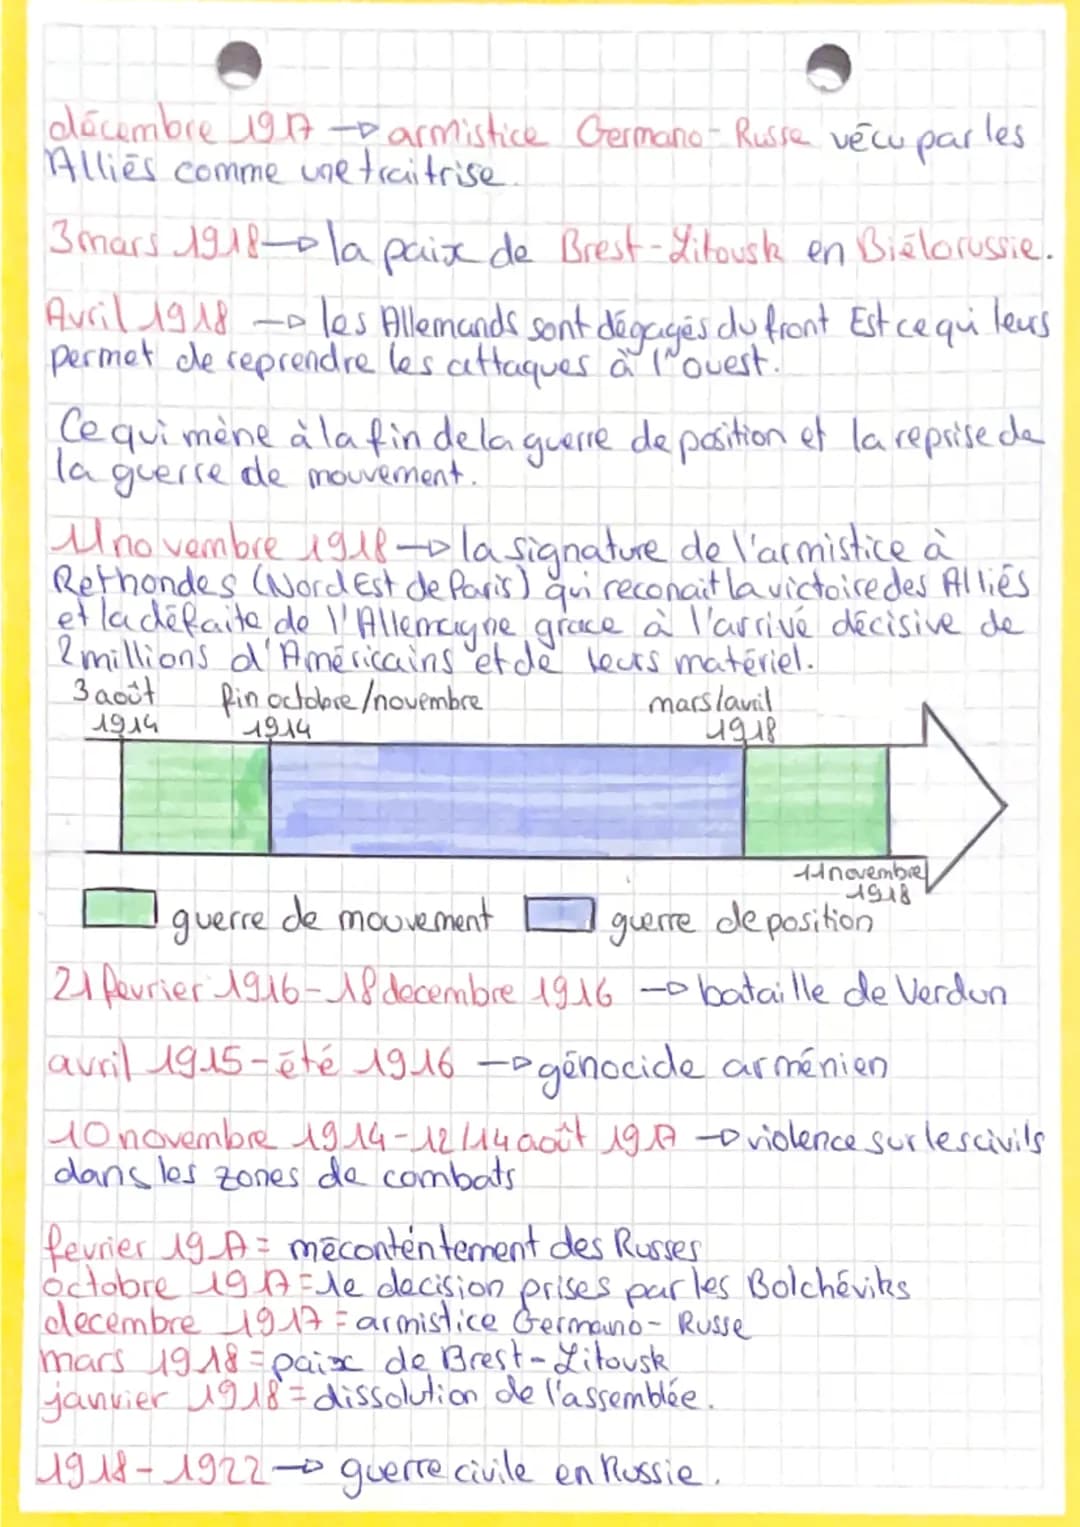 décembre 1917 → armistice Germano-Russe vécu par les
Alliés comme une traitrise.
3 mars 1918 → la paix de Brest-Litovsk en Biélorussie.
Avril 1918 → les Allemands sont dégagés du front Est ce qui leurs
permet de reprendre les attaques à l'ouest.
Ce qui mène à la fin de la guerre de position et la reprise de
la guerre de mouvement.
11 novembre 1918 → la signature de l'armistice à
Rethondes (Nord Est de Paris) qui reconait la victoire des Alliés
et la défaite de l'Allemagne grace à l'arrivé décisive de
2 millions d'Américains et de leurs matériel.
3 août fin octobre/novembre mars/avril
1914 1914 1918
11 novembre
1918
guerre de mouvement guerre de position
21 fevrier 1916 - 18 decembre 1916 → bataille de Verdun
avril 1915 - été 1916 → génocide arménien
10 novembre 1914 - 12/14 août 1917 → violence sur les civils
dans les zones de combats
fevrier 1917 = mécontentement des Russes
octobre 1917 = le decision prises par les Bolchéviks
decembre 1917 = armistice Germano-Russe
mars 1918 = paix de Brest-Litovsk
janvier 1918 = dissolution de l'assemblée.
1918 - 1922 → guerre civile en Russie.